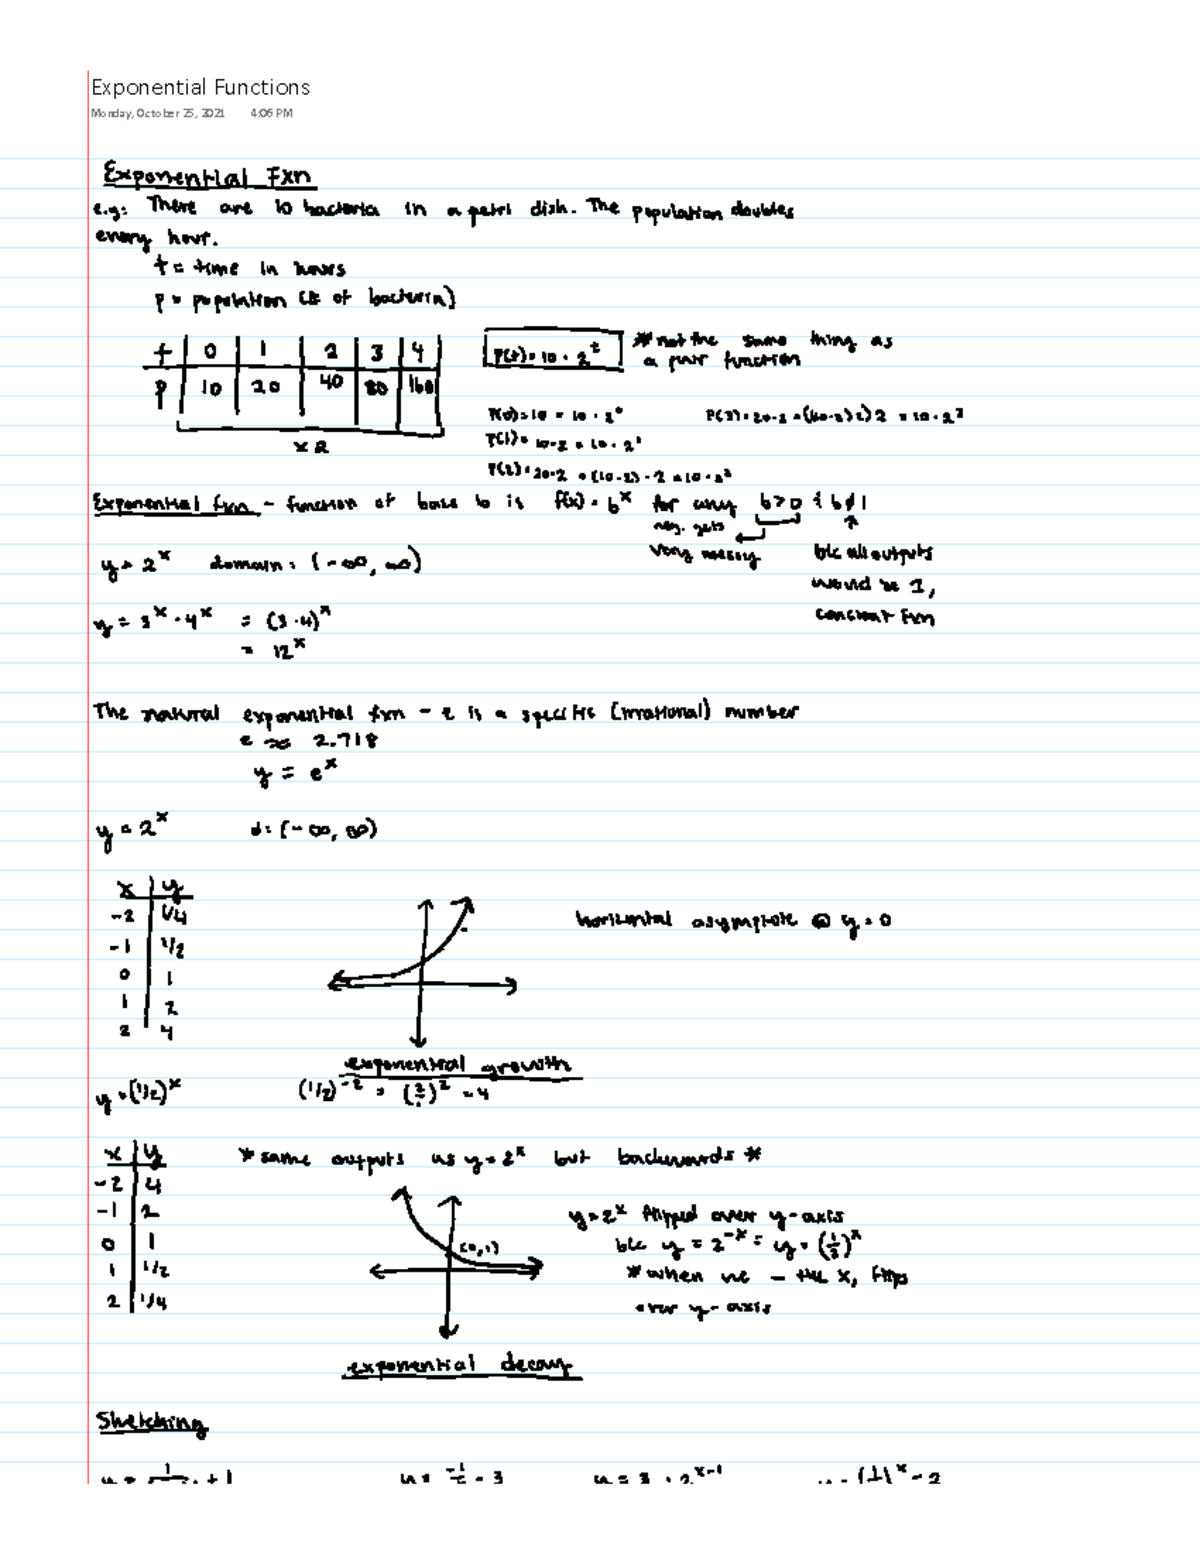 Exponential Functions
Monday, October 25, 2021 4:06 PM
Exponential Fxn
e.g: There are 10 bacteria in a petri dish. The population doubles
every hour.
t = time in hours
P = population (# of bacteria)
t | 0 | 1 | 2 | 3 | 4
P | 10 | 20 | 40 | 80 | 160
x 2
P(t) = 10 · 2^t
* not the same thing as
a pwr function
P(0) = 10 = 10 · 2^0
P(1) = 10·2 = 10 · 2^1
P(2) = 20·2 = (10·2)·2 = 10·2^2
Exponential fxn - function of base b is f(x) = b^x for any b>0 & b≠1
neg. gets
very messy
b/c all outputs
would be 1,
constant fxn
y = 2^x domain: (-∞, ∞)
y = 3^x · 4^x = (3·4)^x
= 12^x
The natural exponential fxn - e is a specific (irrational) number
e ≈ 2.718
y = e^x
y = 2^x d: (-∞, ∞)
x | y
-2 | 1/4
-1 | 1/2
0 | 1
1 | 2
2 | 4
horizontal asymptote @ y = 0
exponential growth
y = (1/2)^x
(1/2)^-2 = (2/1)^2 = 4
x | y
-2 | 4
-1 | 2
0 | 1
1 | 1/2
2 | 1/4
* same outputs as y = 2^x but backwards *
(0,1)
y = 2^x flipped over y-axis
b/c y = 2^-x = y = (1/2)^x
* when we - the x, flips
over y-axis
exponential decay
Sketching